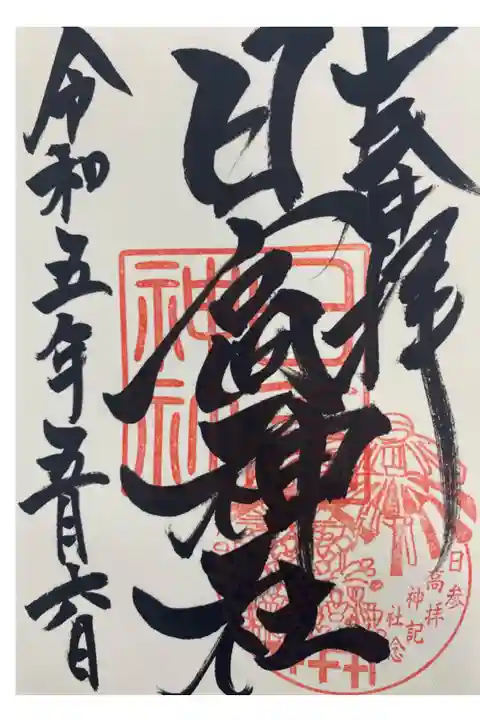 奉拝
日高神社
令和五年五月六日
日高神社
参拝記念